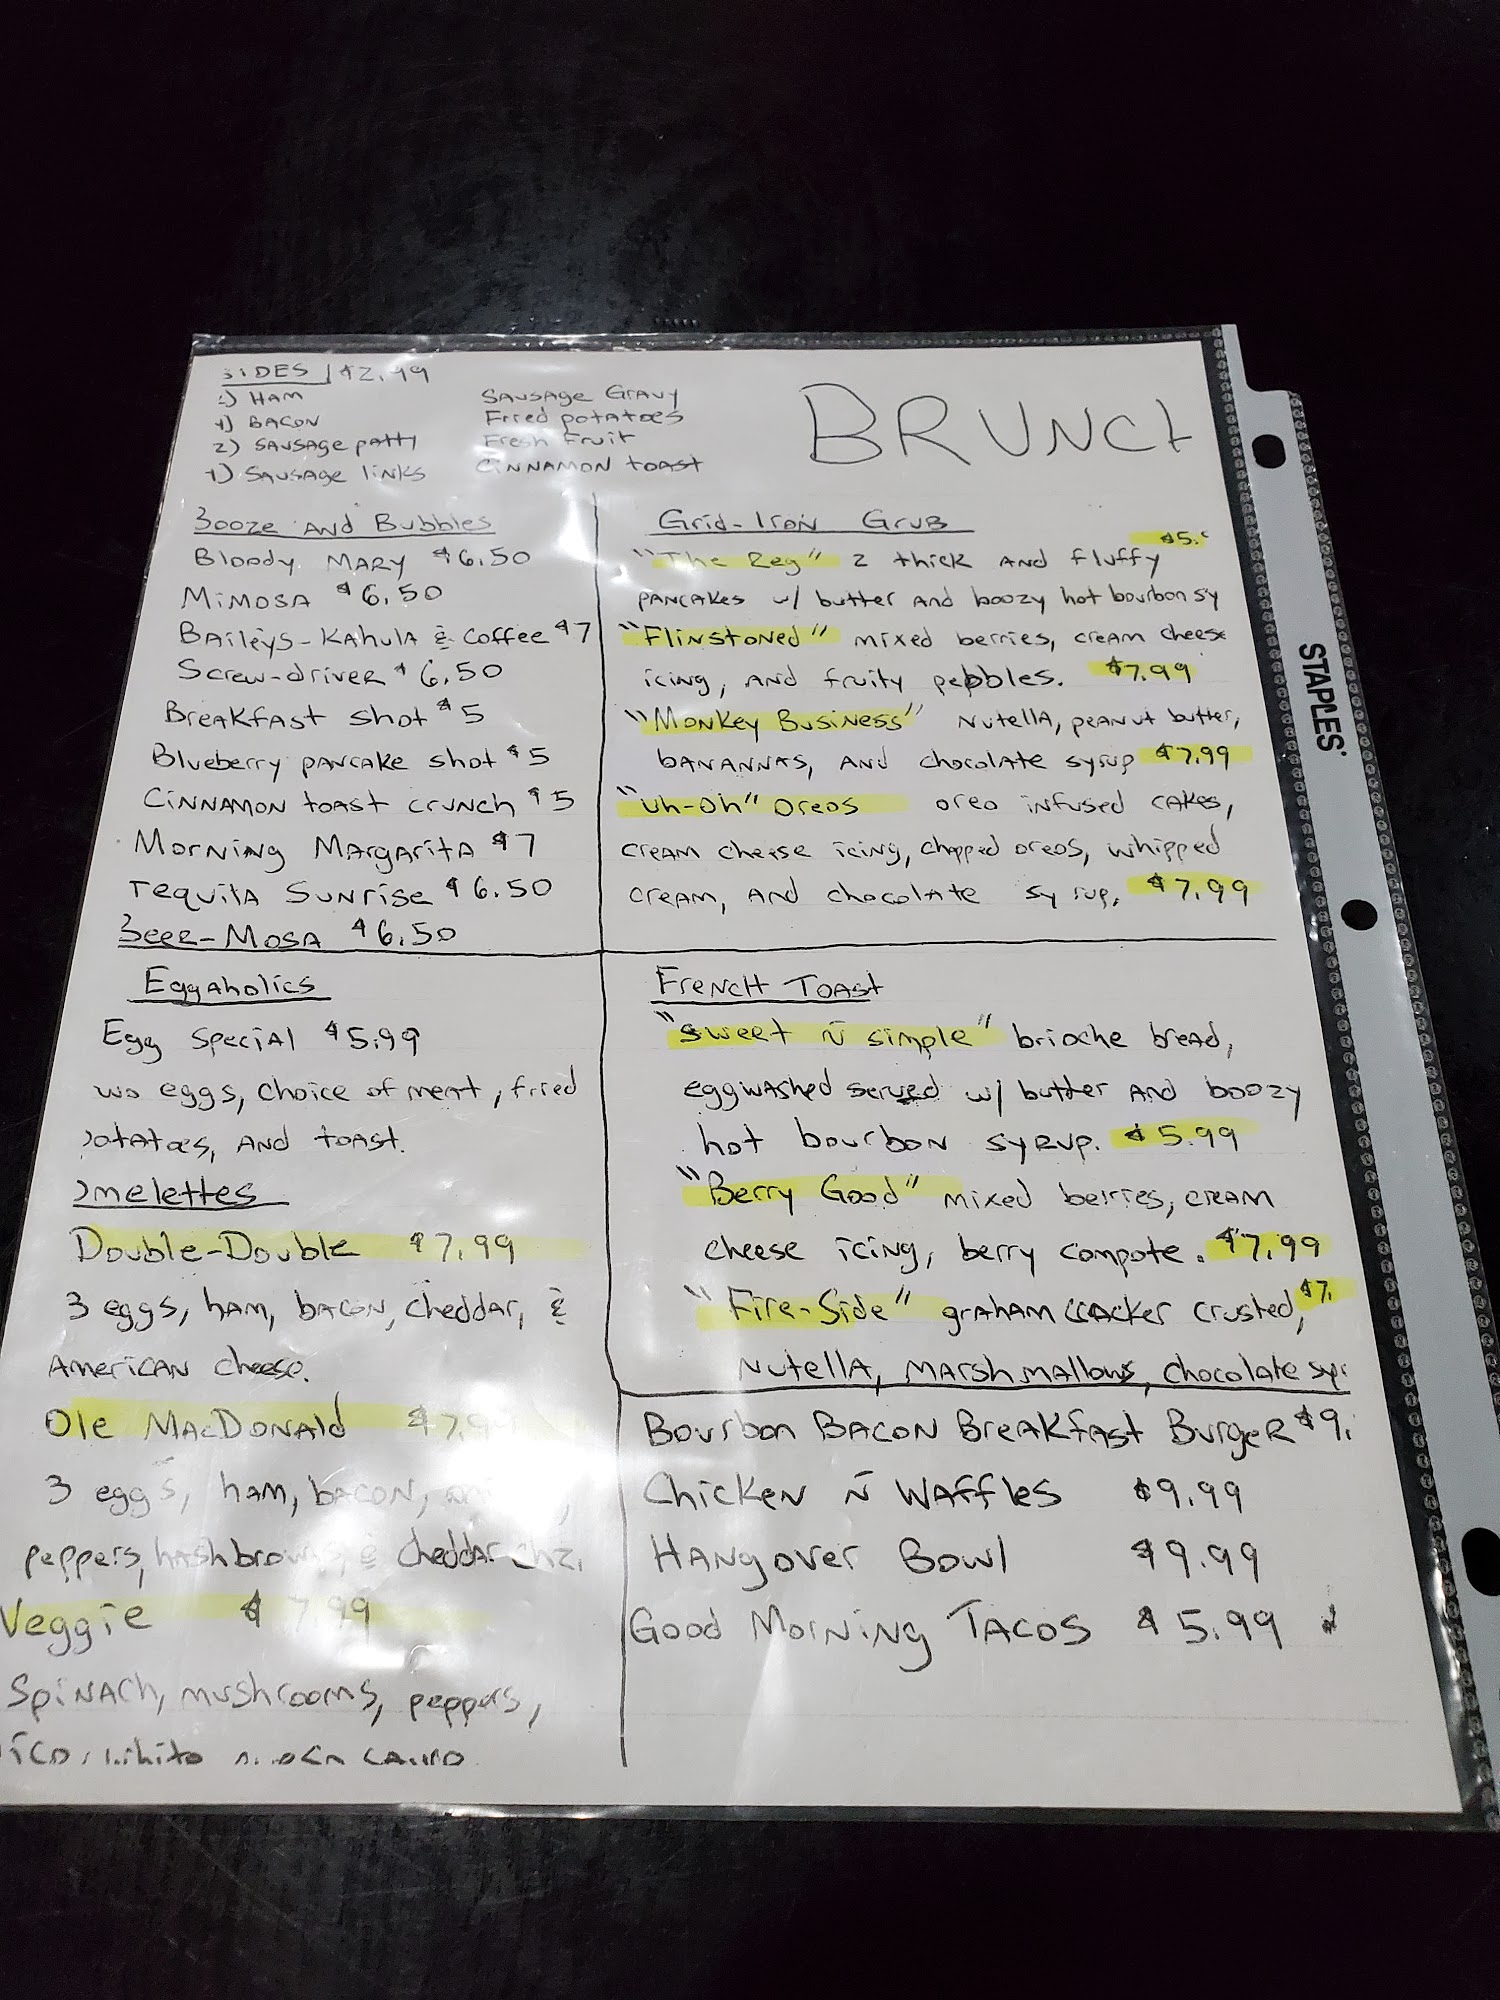 SIDES | $2.99
HAM
BACON
2) SAUSAGE PATTY
SAUSAGE LINKS
SAUSAGE GRAVY
Fried potatoes
Fresh Fruit
CINNAMON TOAST
BRUNCH
Booze AND Bubbles
Bloody MARY $6.50
MIMOSA $6.50
BAILEYS-KAHULA & COFFEE $7
SCREW-DRIVER $6.50
BREAKFAST SHOT $5
Blueberry PANCAKE SHOT $5
CINNAMON TOAST CRUNCH $5
MORNING MARGARITA $7
TEQUILA SUNRISE $6.50
BEER-MOSA $6.50
Grid-IRON GRUB
$5.
"The Reg" 2 thick AND fluffy
PANCAKES w/ butter AND boozy hot bourbon sy
"Flinstoned" mixed berries, cream cheese
icing, AND fruity pebbles. $7.99
"Monkey Business" Nutella, peanut butter,
BANANNAS, AND chocolate syrup $7.99
"Uh-Oh" OREOS oreo infused cakes,
cream cheese icing, chopped oreos, whipped
cream, AND chocolate syrup. $7.99
Eggaholics
Egg Special $5.99
wo eggs, choice of meat, fried
potatoes, AND toast.
Omelettes
Double-Double $7.99
3 eggs, ham, bacon, cheddar, &
American cheese.
Ole MacDonald $7.99
3 eggs, ham, bacon,
peppers, hashbrowns, & cheddar chz.
Veggie $7.99
Spinach, mushrooms, peppers,
French Toast
"Sweet Ñ Simple" brioche bread,
eggwashed served w/ butter AND boozy
hot bourbon syrup. $5.99
"Berry Good" mixed berries, cream
cheese icing, berry compote. $7.99
"Fire-Side" graham cracker crusted, $7.
Nutella, marshmallows, chocolate syr
Bourbon BACON Breakfast Burger $9.
Chicken Ñ Waffles $9.99
Hangover Bowl $9.99
Good Morning TACOS $5.99
STAPLES